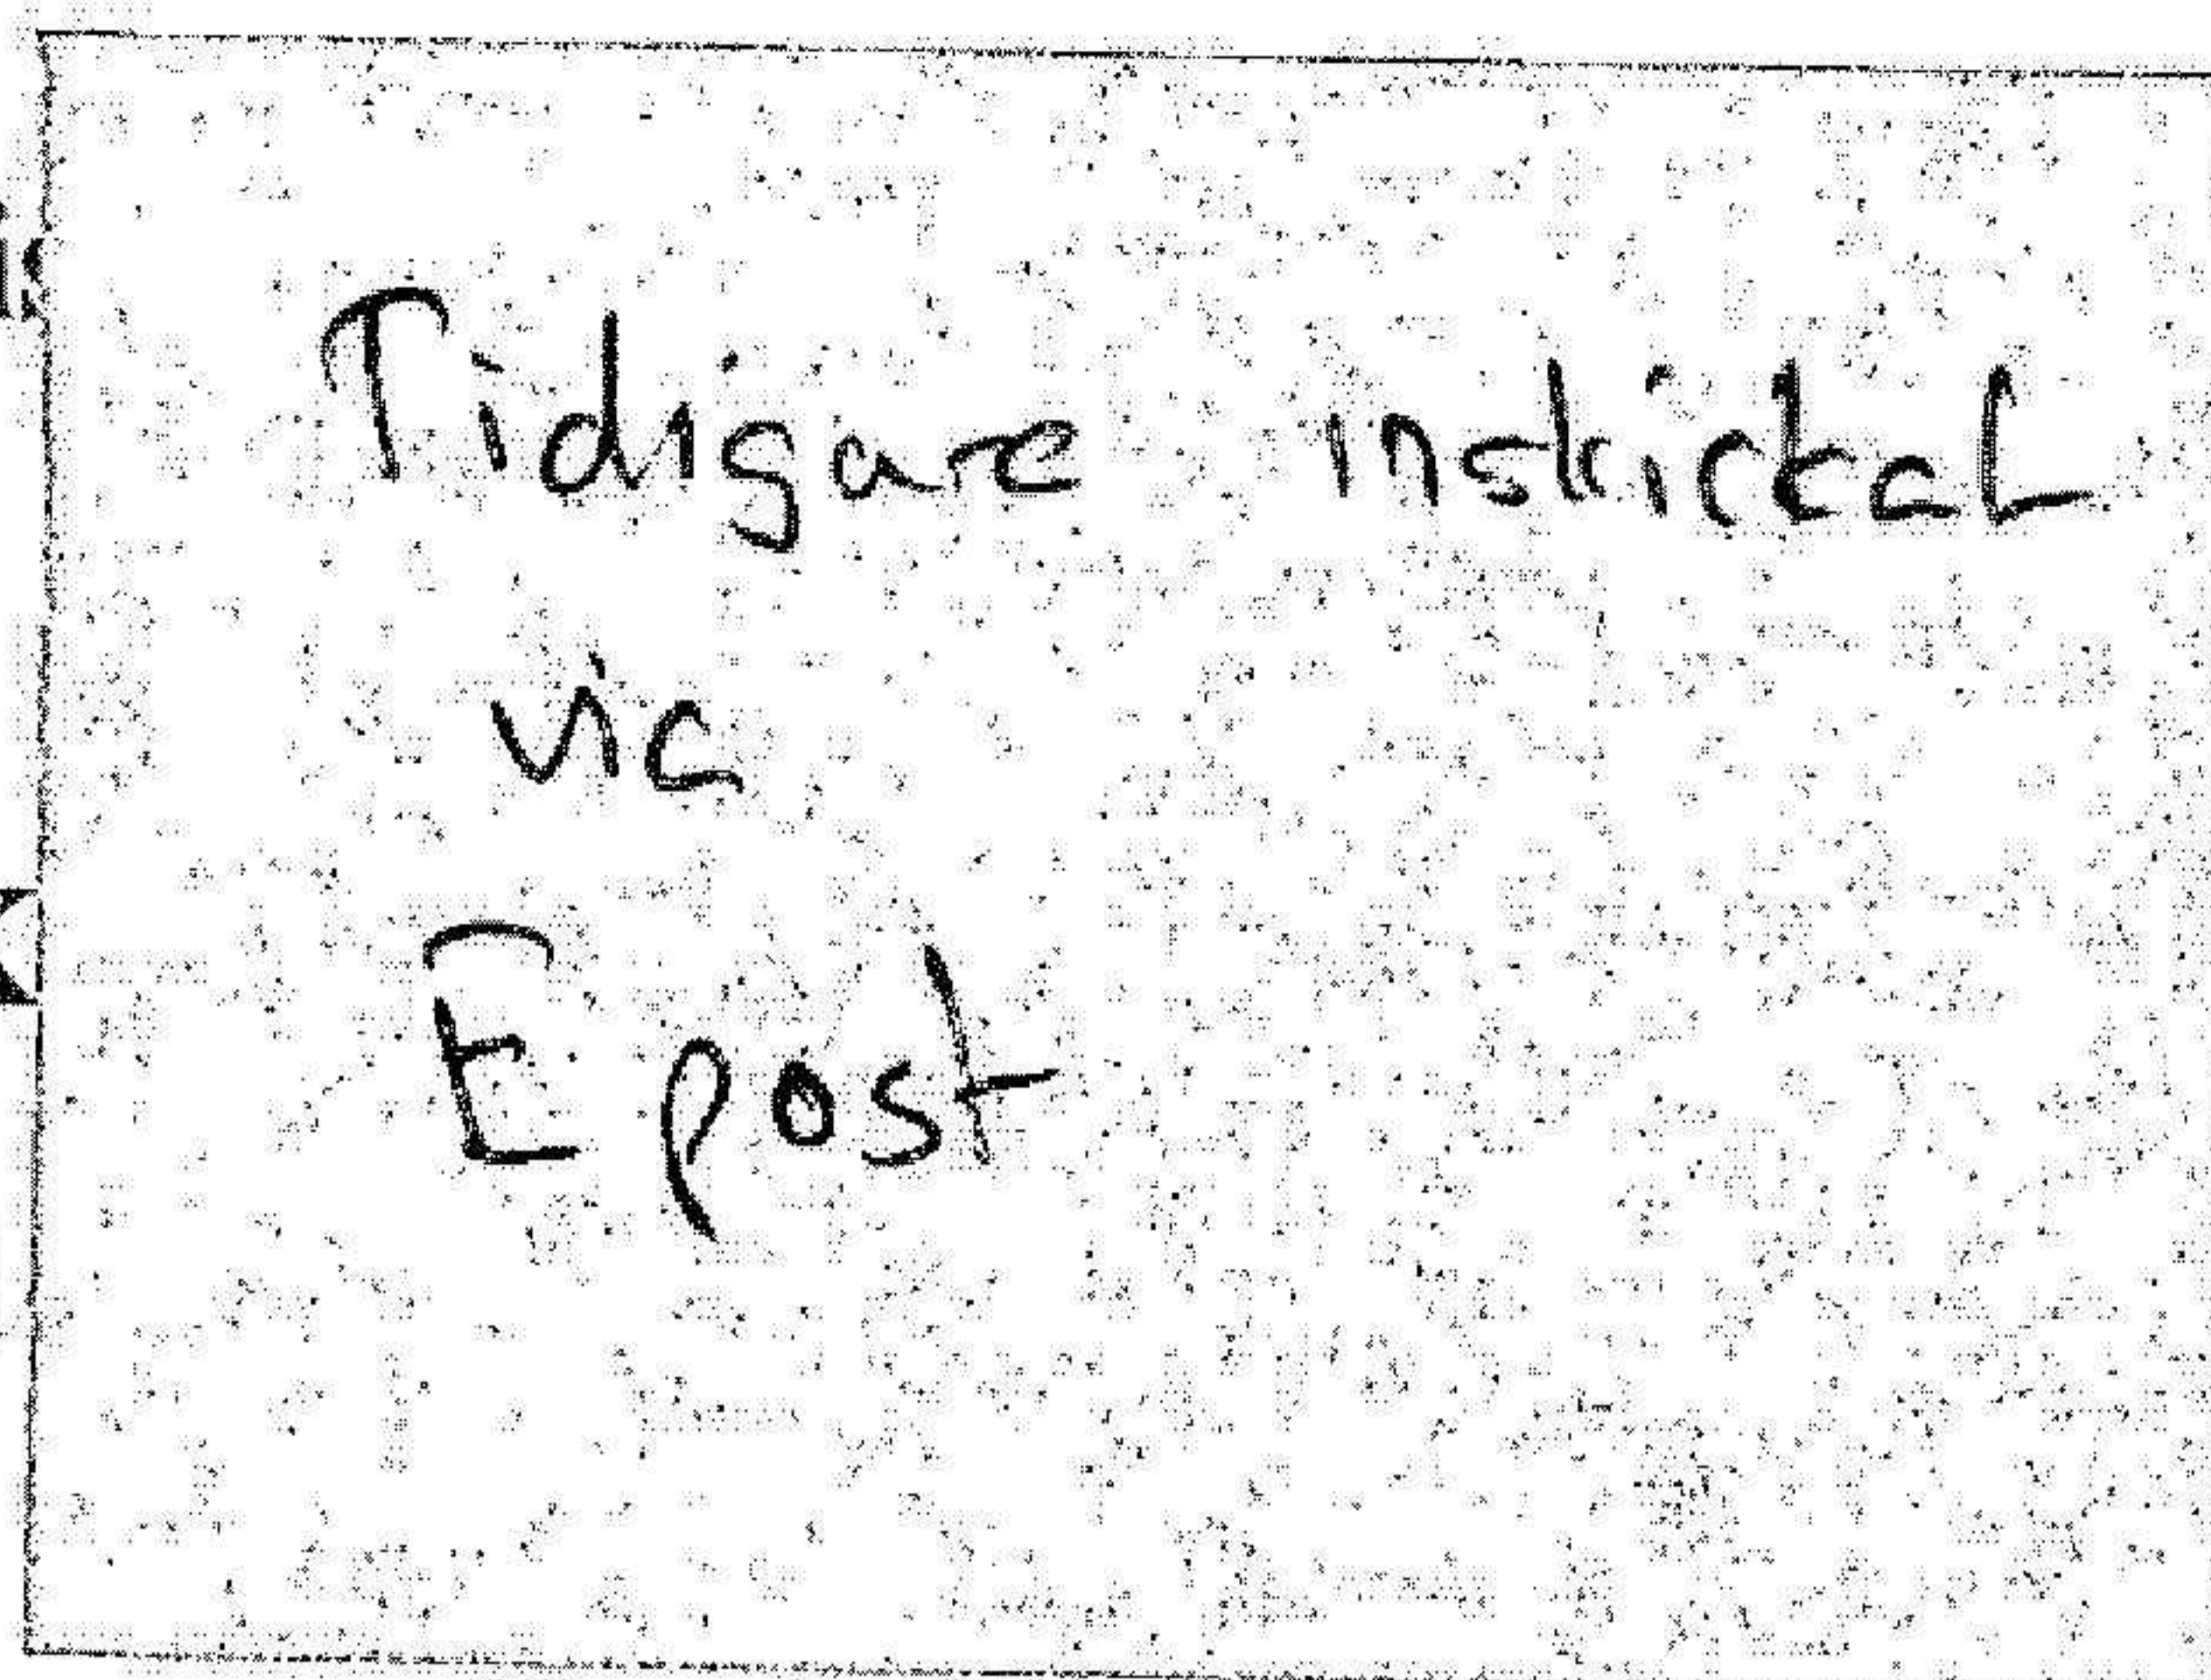 Tidigare inskickat
via
Epost